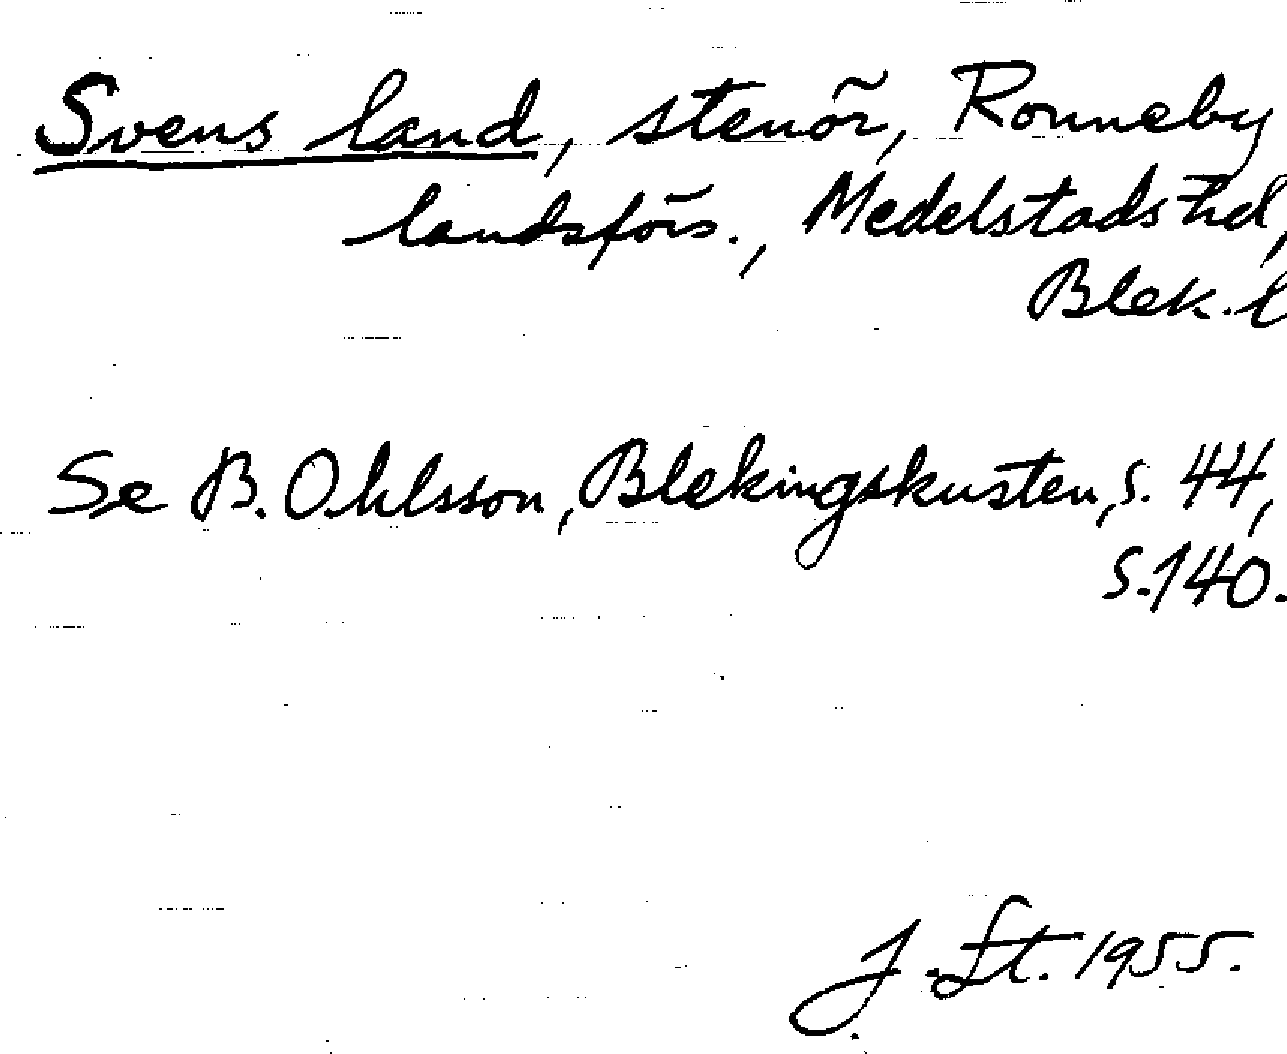 Svens land, stenör, Ronneby
landsförs., Medelstads hd,
Blek. l
Se B. Ohlsson, Blekingskusten, s. 44,
s. 140.
J. St. 1955.